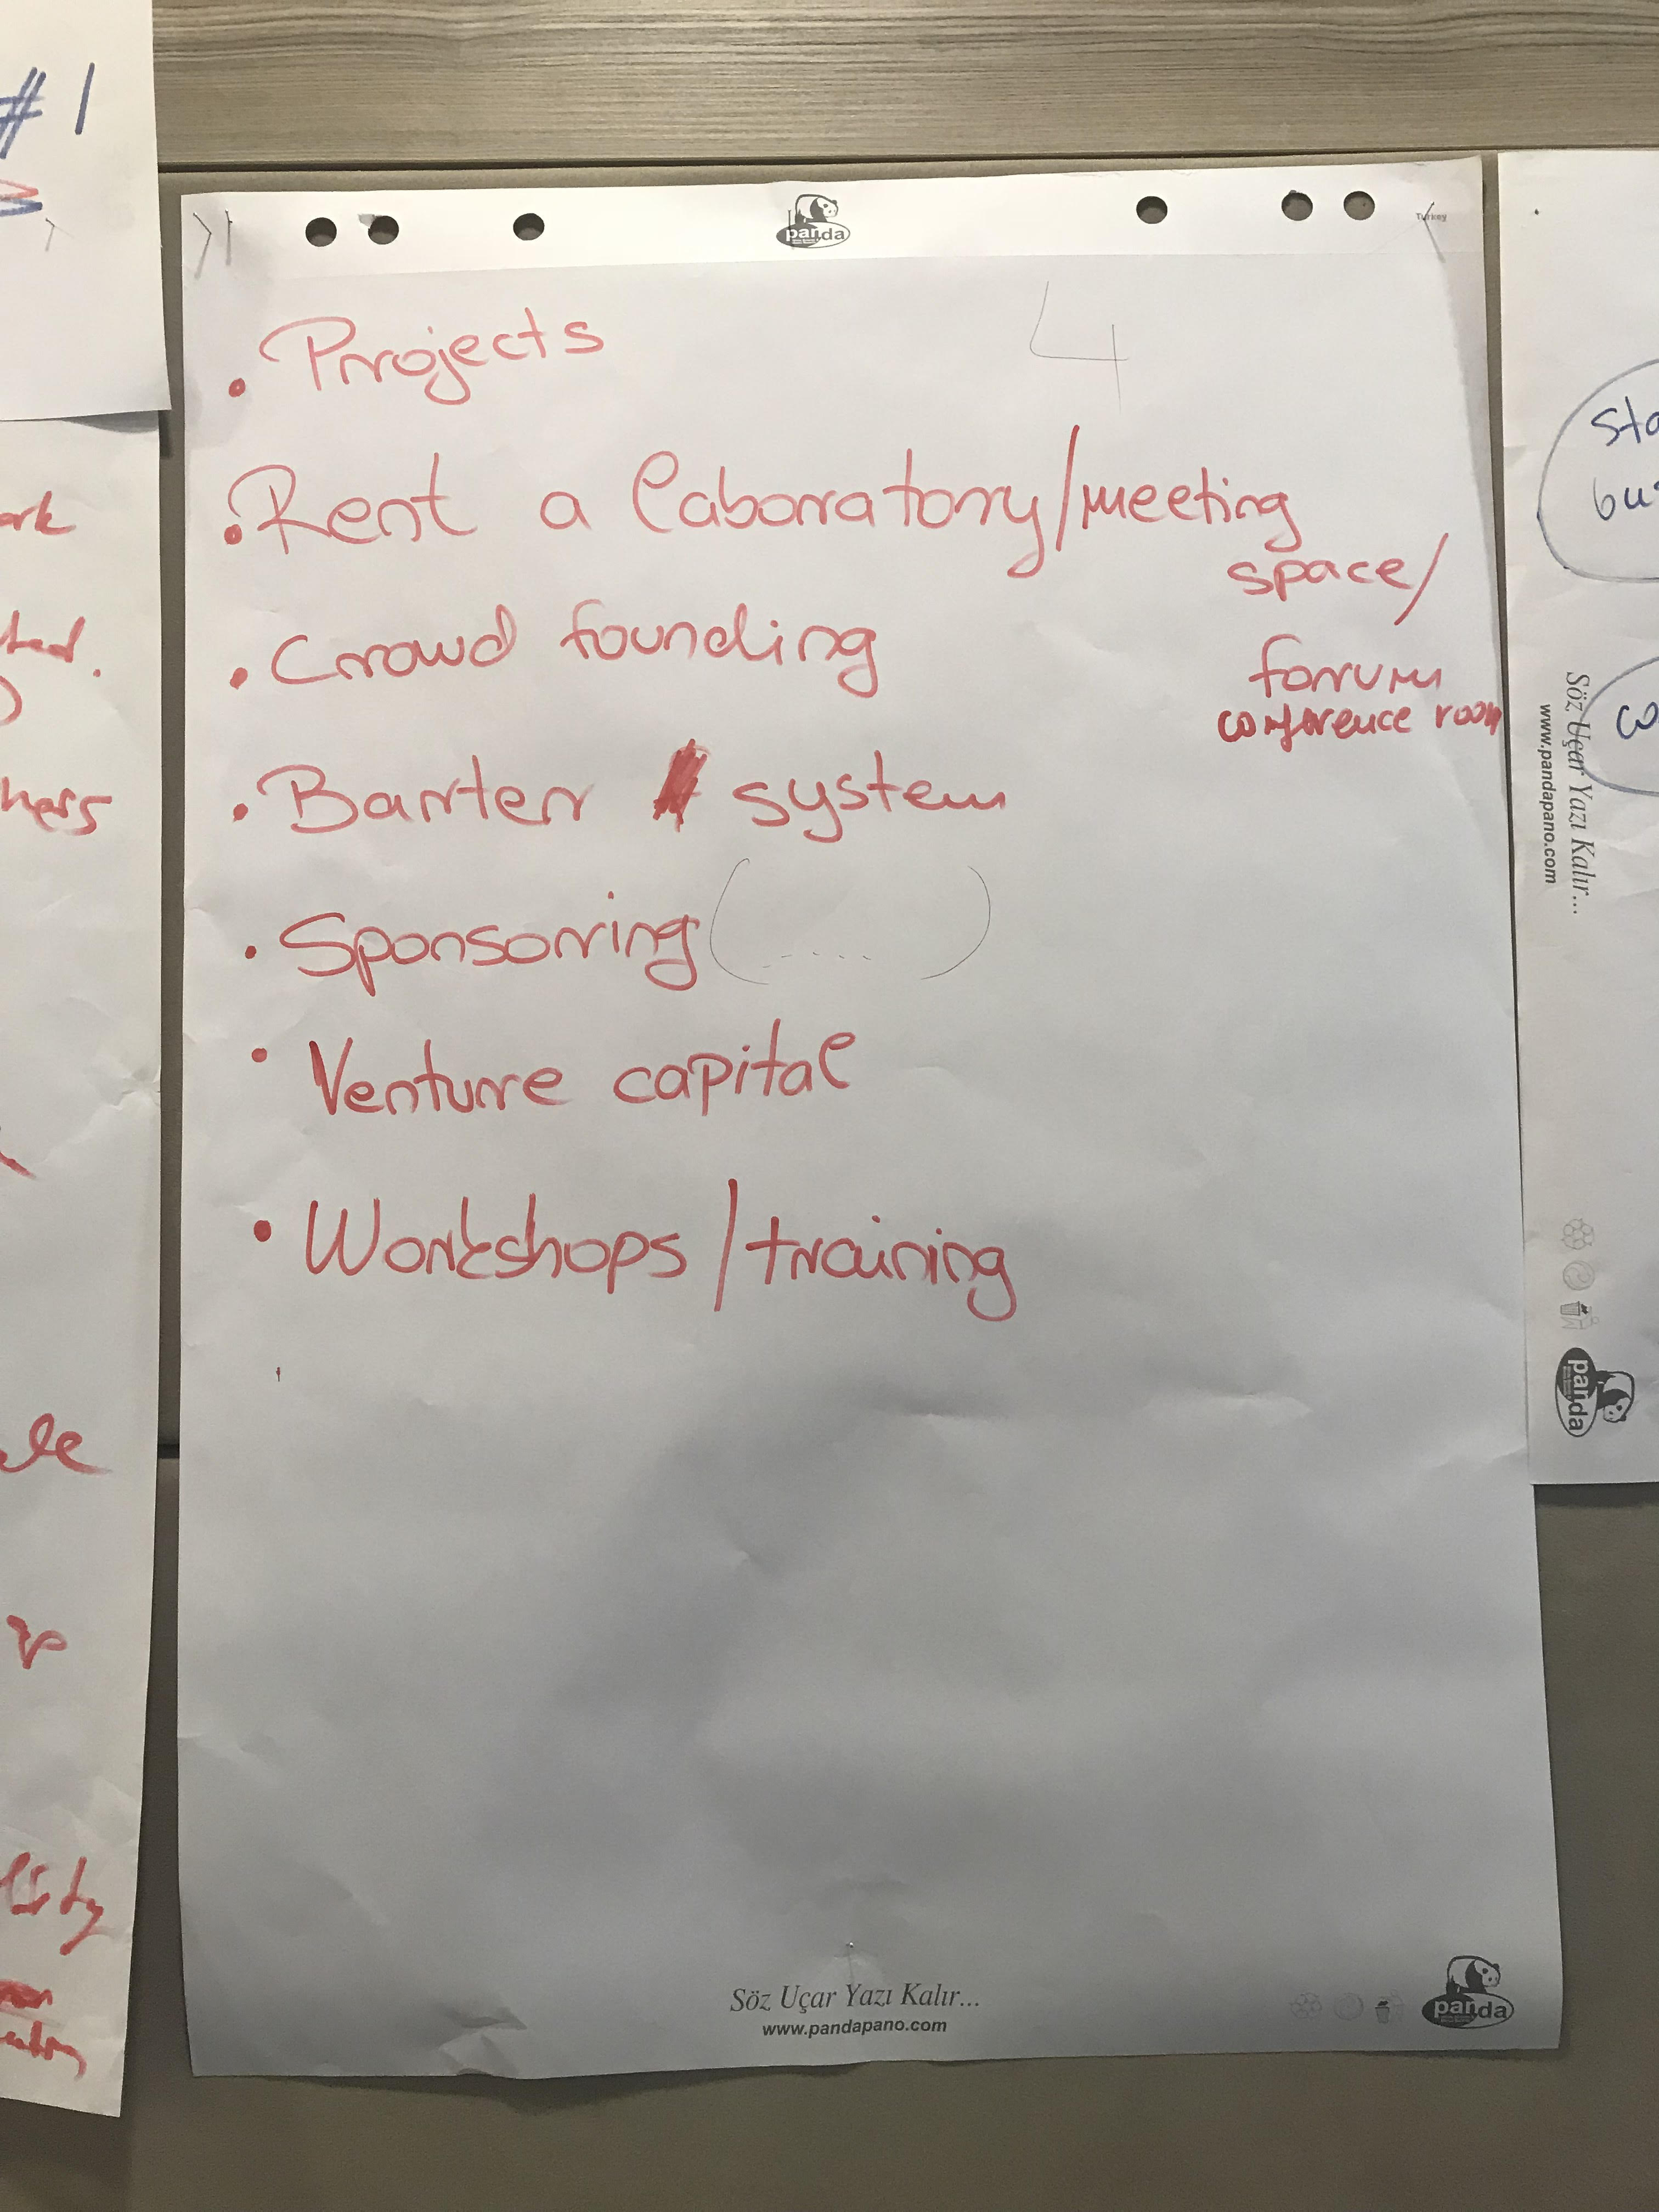 #1
panda
Turkey
4
• Projects
• Rent a laboratory/meeting
space/
forum
conference room
• Crowd founding
• Barter system
• Sponsoring (.....)
• Venture capital
• Workshops/training
Söz Uçar Yazı Kalır...
www.pandapano.com
panda
Söz Uçar Yazı Kalır...
www.pandapano.com
panda